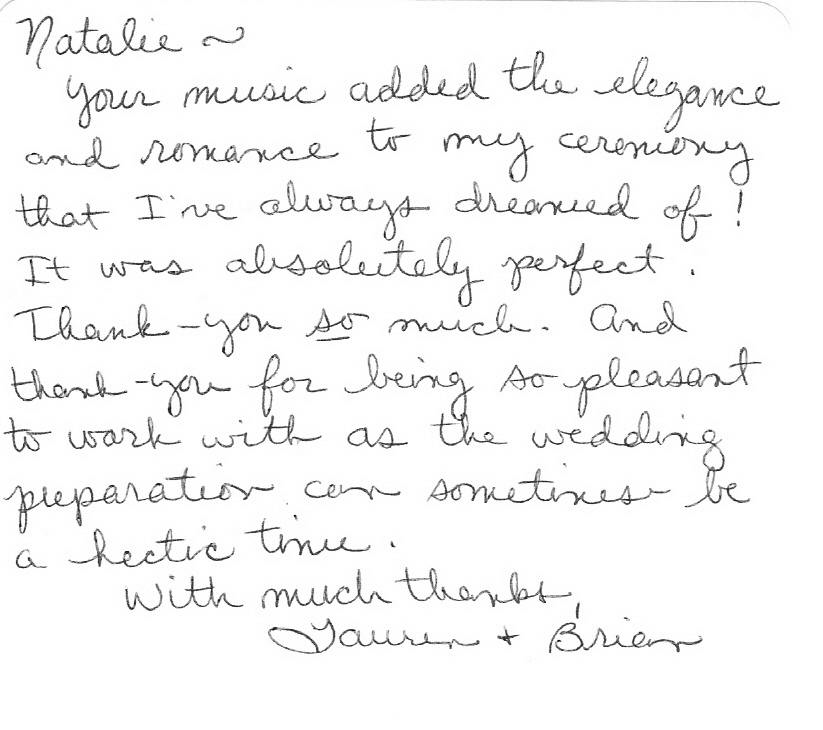 Natalie ~
Your music added the elegance
and romance to my ceremony
that I've always dreamed of!
It was absolutely perfect.
Thank-you so much. And
thank-you for being so pleasant
to work with as the wedding
preparation can sometimes be
a hectic time.
With much thanks,
Lauren + Brian